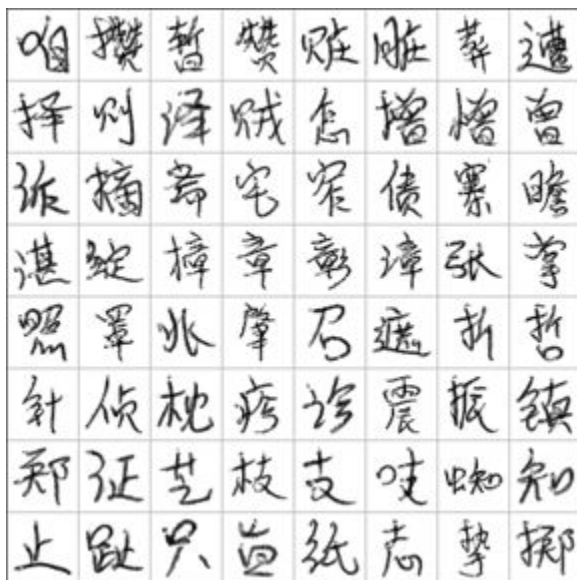 咱攒暂赞赃脏葬遭
择则泽贼怎增憎曾
诈摘斋宅窄债寨瞻
湛绽樟章彰漳张掌
照罩兆肇召遮折哲
针侦枕疹诊震振镇
郑证芝枝支吱蜘知
止趾只旨纸志挚掷